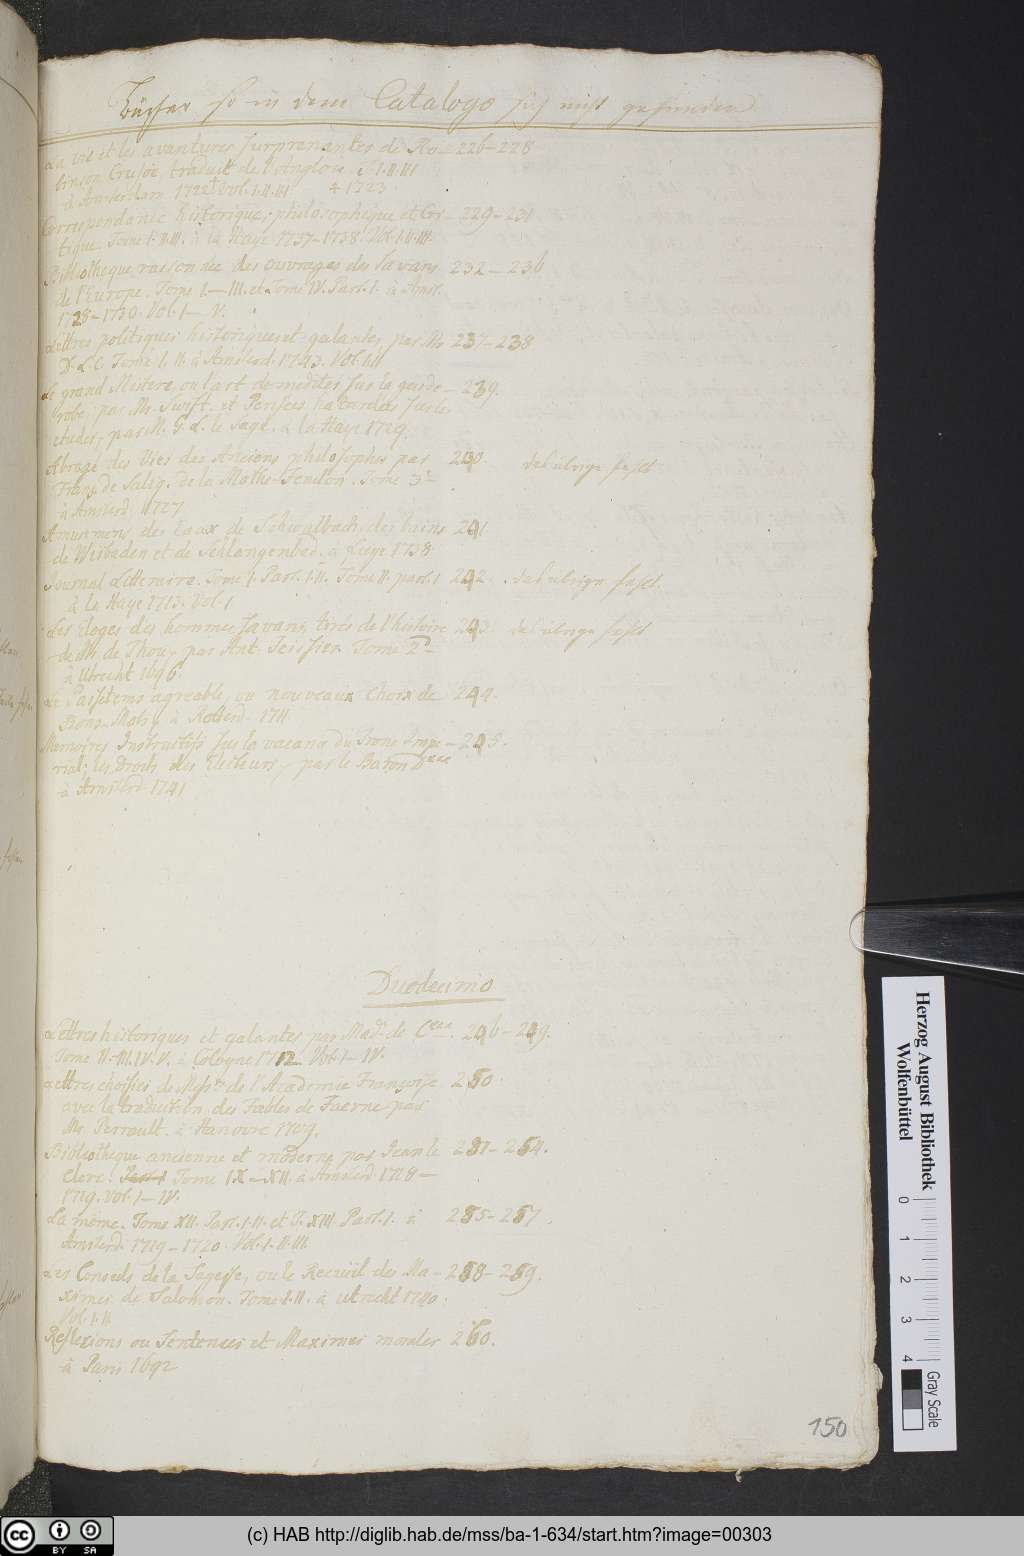 Bücher so in dem Catalogo sich nicht gefunden
La vie et les avantures surprenantes de Ro- 226-228
binson Crusoe, traduit de l'Anglois. T. I. II. III
à Amsterdam 1722† Vol. I. II. III † 1723
Correspondance historique, philosophique et Cri- 229-231
tique. Tome I. II. III. à la Haye 1737-1738. Vol. I. II. III.
Bibliotheque raisonnée des ouvrages des Savans 232-236
de l'Europe. Tome I.-III. et Tome IV. Part. I. à Amst.
1728-1730. Vol. I-V.
Lettres politiques historiques et galantes, par Mr 237-238
D. L. C. Tome I. II. à Amsterd. 1743. Vol. I. II
Le grand Mistere, ou l'art de mediter sur la garde- 239.
robe, par Mr. Swift. et Pensées hazardées sur les
etudes, par M. G. L. le Sage. à la Haye 1729.
Abregé des Vies des Anciens philosophes par 240. das übrige fehlt
Franç. de Salig. de la Mothe-Fenelon. Tome 3e
à Amsterd. 1727
Amusemens des Eaux de Schwalbach, des bains 241
de Wisbaden et de Schlangenbad. à Liege 1738.
Journal Litteraire. Tome I. Part. I. II. Tome II. part. I 242. das übrige fehlt.
à la Haye 1713. Vol. I
Les Eloges des hommes savans, tirés de l'histoire 243. das übrige fehlt
de Mr. de Thou, par Ant. Teissier Tome 2e
à Utrecht 1696.
Le Passetems agreable, ou nouveau Choix de 244.
Bons-Mots, à Rotterd. 1711
Memoires Instructifs sur la vacance du Trone Impe- 245.
rial, les Droits des Electeurs, par le Baron D***
à Amsterd. 1741
Duodecimo
Lettres historiques et galantes par Mad. de C***. 246-249.
Tome II. III. IV. V. à Cologne 1712 Vol. I-IV.
Lettres choisies de Messrs de l'Academie Françoise 250.
avec la traduction des Fables de Faerne par
Mr Perrault. à Hanovre 1709.
Bibliotheque ancienne et moderne par Jean le 251-254.
Clerc. Tome IX-XII. à Amsterd. 1718-
1719. Vol. I-IV.
La même. Tome XII. Part. I. II. et T. XIII. Part. I. à 255-257
Amsterd. 1719-1720. Vol. I. II. III.
Les Conseils de la Sagesse, ou le Recueil des Ma- 258-259.
ximes de Salomon. Tome I. II. à Utrecht 1740.
Vol. I. II
Reflexions ou Sentences et Maximes morales 260.
à Paris 1692
150
Herzog August Bibliothek
Wolfenbüttel
0 1 2 3 4
Gray Scale
cc BY SA
(c) HAB http://diglib.hab.de/mss/ba-1-634/start.htm?image=00303